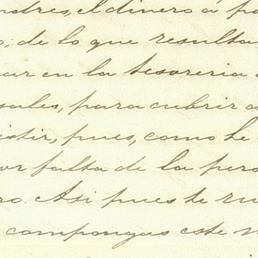 el dinero á
o; de lo que resulta
ar en la tesoreria
sales, para cubrir
istir, pues, como te
or falta de la pers
ro. Asi pues te ru
compongas este